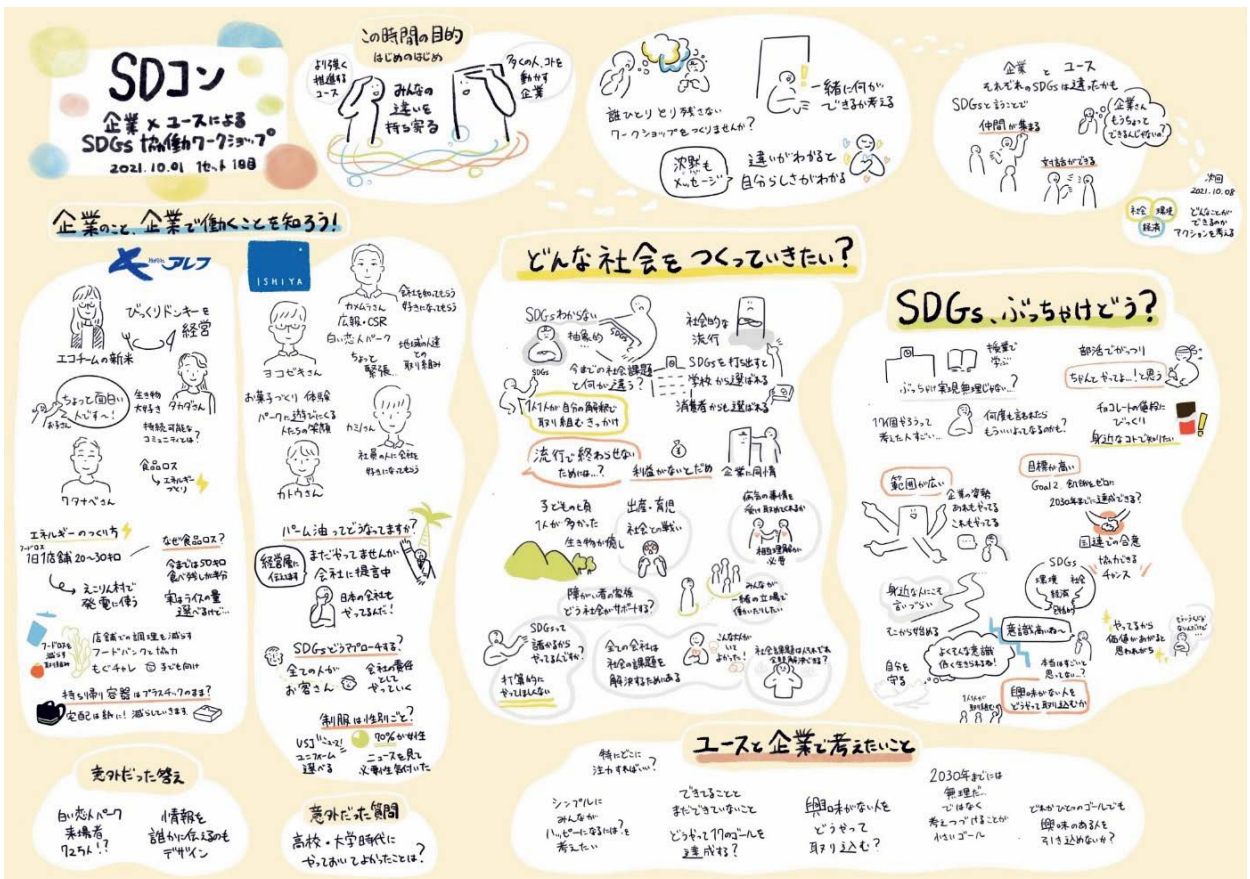 SDコン
企業×ユースによる
SDGs 協働ワークショップ
2021.10.01 1セット1日目
この時間の目的
はじめのはじめ
より強く
推進する
ユース
みんなの
違いを
持ち寄る
多くの人、コトを
動かす
企業
誰ひとりとり残さない
ワークショップをつくりませんか?
一緒に何が
できるか考える
沈黙も
メッセージ
違いがわかると
自分らしさがわかる
企業 と ユース
それぞれのSDGsは違ったかも
SDGsと言うことで
仲間が集まる
企業さん
もうちょっと
できるんじゃないの?
対話ができる
次回
2021.10.08
社会 環境
経済
どんなことが
できるのか
アクションを考える
企業のこと、企業で働くことを知ろう!
アレフ
びっくりドンキーを
経営
エコチームの新米
ちょっと面白い
2人です〜!
お子さん
生き物
大好き
タカダさん
持続可能な
コミュニティとは?
ワタナベさん
食品ロス
エネルギー
づくり
エネルギーのつくり方
フードロス
1日1店舗 20〜30キロ
えこりん村で
発電に使う
なぜ食品ロス?
今までは50キロ
食べ残しが半分
実はライスの量
選べるけど…
フードロスを
減らす
取り組み
店舗での調理を減らす
フードバンクと協力
もぐチャレ 子ども向け
持ち帰り容器はプラスチックのまま?
宅配は紙に! 減らしていきます
ISHIYA
カメムラさん
広報・CSR
白い恋人パーク
ちょっと
緊張…
会社を知ってもらう
好きになってもらう
地域の人達
との
取り組み
ヨコゼキさん
お菓子づくり体験
パークに遊びにくる
人たちの笑顔
カミノさん
社員の人に会社を
好きになってもらう
カトウさん
パーム油ってどうなってますか?
経営層に
伝えます
まだやってませんが
会社に提言中
日本の会社も
やってるんだ!
SDGsどうアプローチする?
全ての人が
お客さん
会社の責任
として
やっていく
制服は性別ごと?
USJ ニュース!
ユニフォーム
選べる
70%が女性
ニュースを見て
必要性気付いた
意外だった答え
白い恋人パーク
来場者
72万人!?
情報を
誰かに伝えるのも
デザイン
意外だった質問
高校・大学時代に
やっておいてよかったことは?
どんな社会をつくっていきたい?
SDGsわからない
抽象的…
SDGs
SDGs
社会的な
流行
今までの社会課題
と何が違う?
SDGsを打ち出すと
学校から選ばれる
消費者からも選ばれる
1人1人が自分の解釈で
取り組むきっかけ
流行で終わらせない
ためには…?
利益がないとだめ
企業に同情
子どもの頃
1人が多かった
生き物が癒し
出産・育児
社会との戦い
お互いの事情を
受け取めてくれるか
相互理解が
必要
障がい者の家族
どう社会がサポートする?
みんなが
一緒の立場で
働いたりしたい
SDGsって
儲かるから
やってるんですか?
打算的に
やってほしくない
全ての会社は
社会の課題を
解決するためにある
こんな大人が
いて
よかった!
SDGs、ぶっちゃけどう?
授業で
学ぶ
ぶっちゃけ実現無理じゃない…?
部活でがっつり
ちゃんとやってよ…!と思う
17個やろうって
考えた人すごい…
何度も言われたら
もういいよってなるのかも?
チョコレートの値段に
びっくり
身近なコトで知りたい
範囲が広い
企業の姿勢
あれもやってる
これもやってる
目標が高い
Goal 2. 飢餓をゼロに
2030年までに達成できる?
国連での合意
SDGs
環境 社会
経済
協力できる
チャンス
身近な人にこそ
言いづらい
そこから始める
意識高いね〜
よくそんな意識
低く生きられるね!
自分を
守る
1人1人が
取り組む
やってるから
価値があがると
思われがち
本当はすごいと
思ってない…?
興味がない人を
どうやって取り込むか
ユースと企業で考えたいこと
特にどこに
注力すればいい?
シンプルに
みんなが
ハッピーになるには?を
考えたい
できてることと
まだできていないこと
どうやって17のゴールを
達成する?
興味がない人を
どうやって
取り込む?
2030年までには
無理だ…
ではなく
考えつづけることが
小さいゴール
どれかひとつのゴールでも
興味のある人を
引き込めないか?